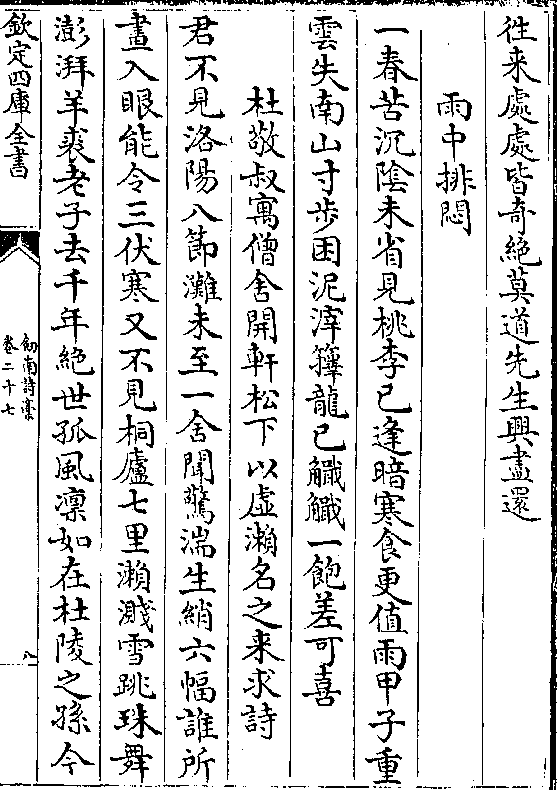 徃来處處皆奇絶莫道先生興盡還
雨中排悶
一春苦沉陰未省見桃李已逢暗寒食更值雨甲子重
雲失南山寸步困泥滓籜龍已觿觿一飽差可喜
杜敬叔寓僧舍開軒松下以虚瀨名之来求詩
君不見洛陽八節灘未至一舍聞驚湍生綃六幅誰所
畫入眼能令三伏寒又不見桐廬七里瀨濺雪跳珠舞
澎湃羊裘老子去千年絶世孤風凛如在杜陵之孫今
欽定四庫全書
劒南詩藁
卷二十七
八